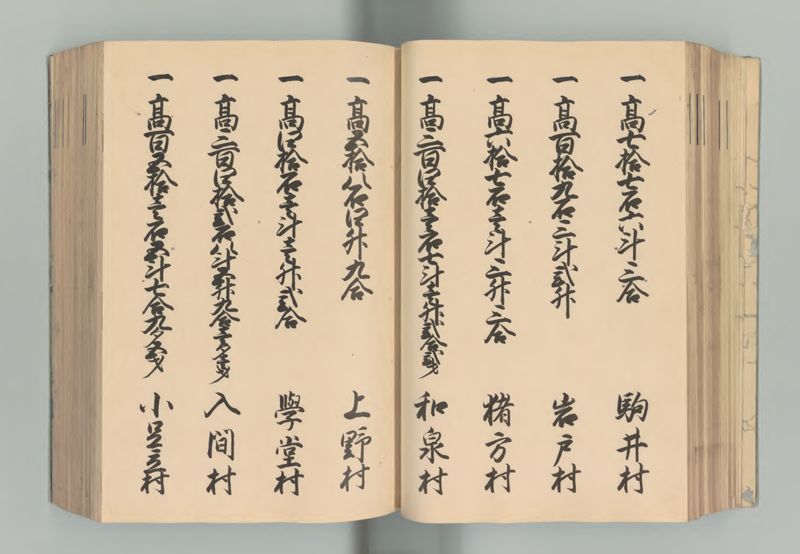 一 高七拾七石六斗三合 駒井村
一 高百拾九石三斗弐升 岩戸村
一 高六拾七石壱斗三升三合 猪方村
一 高三百四拾壱石七斗壱升弐合弐 和泉村
一 高五拾八石四升九合 上野村
一 高四拾石壱斗壱升弐合 學堂村
一 高三百四拾弐石八斗五升九合 入間村
一 高百五拾壱石五斗七合九夕 小足立村